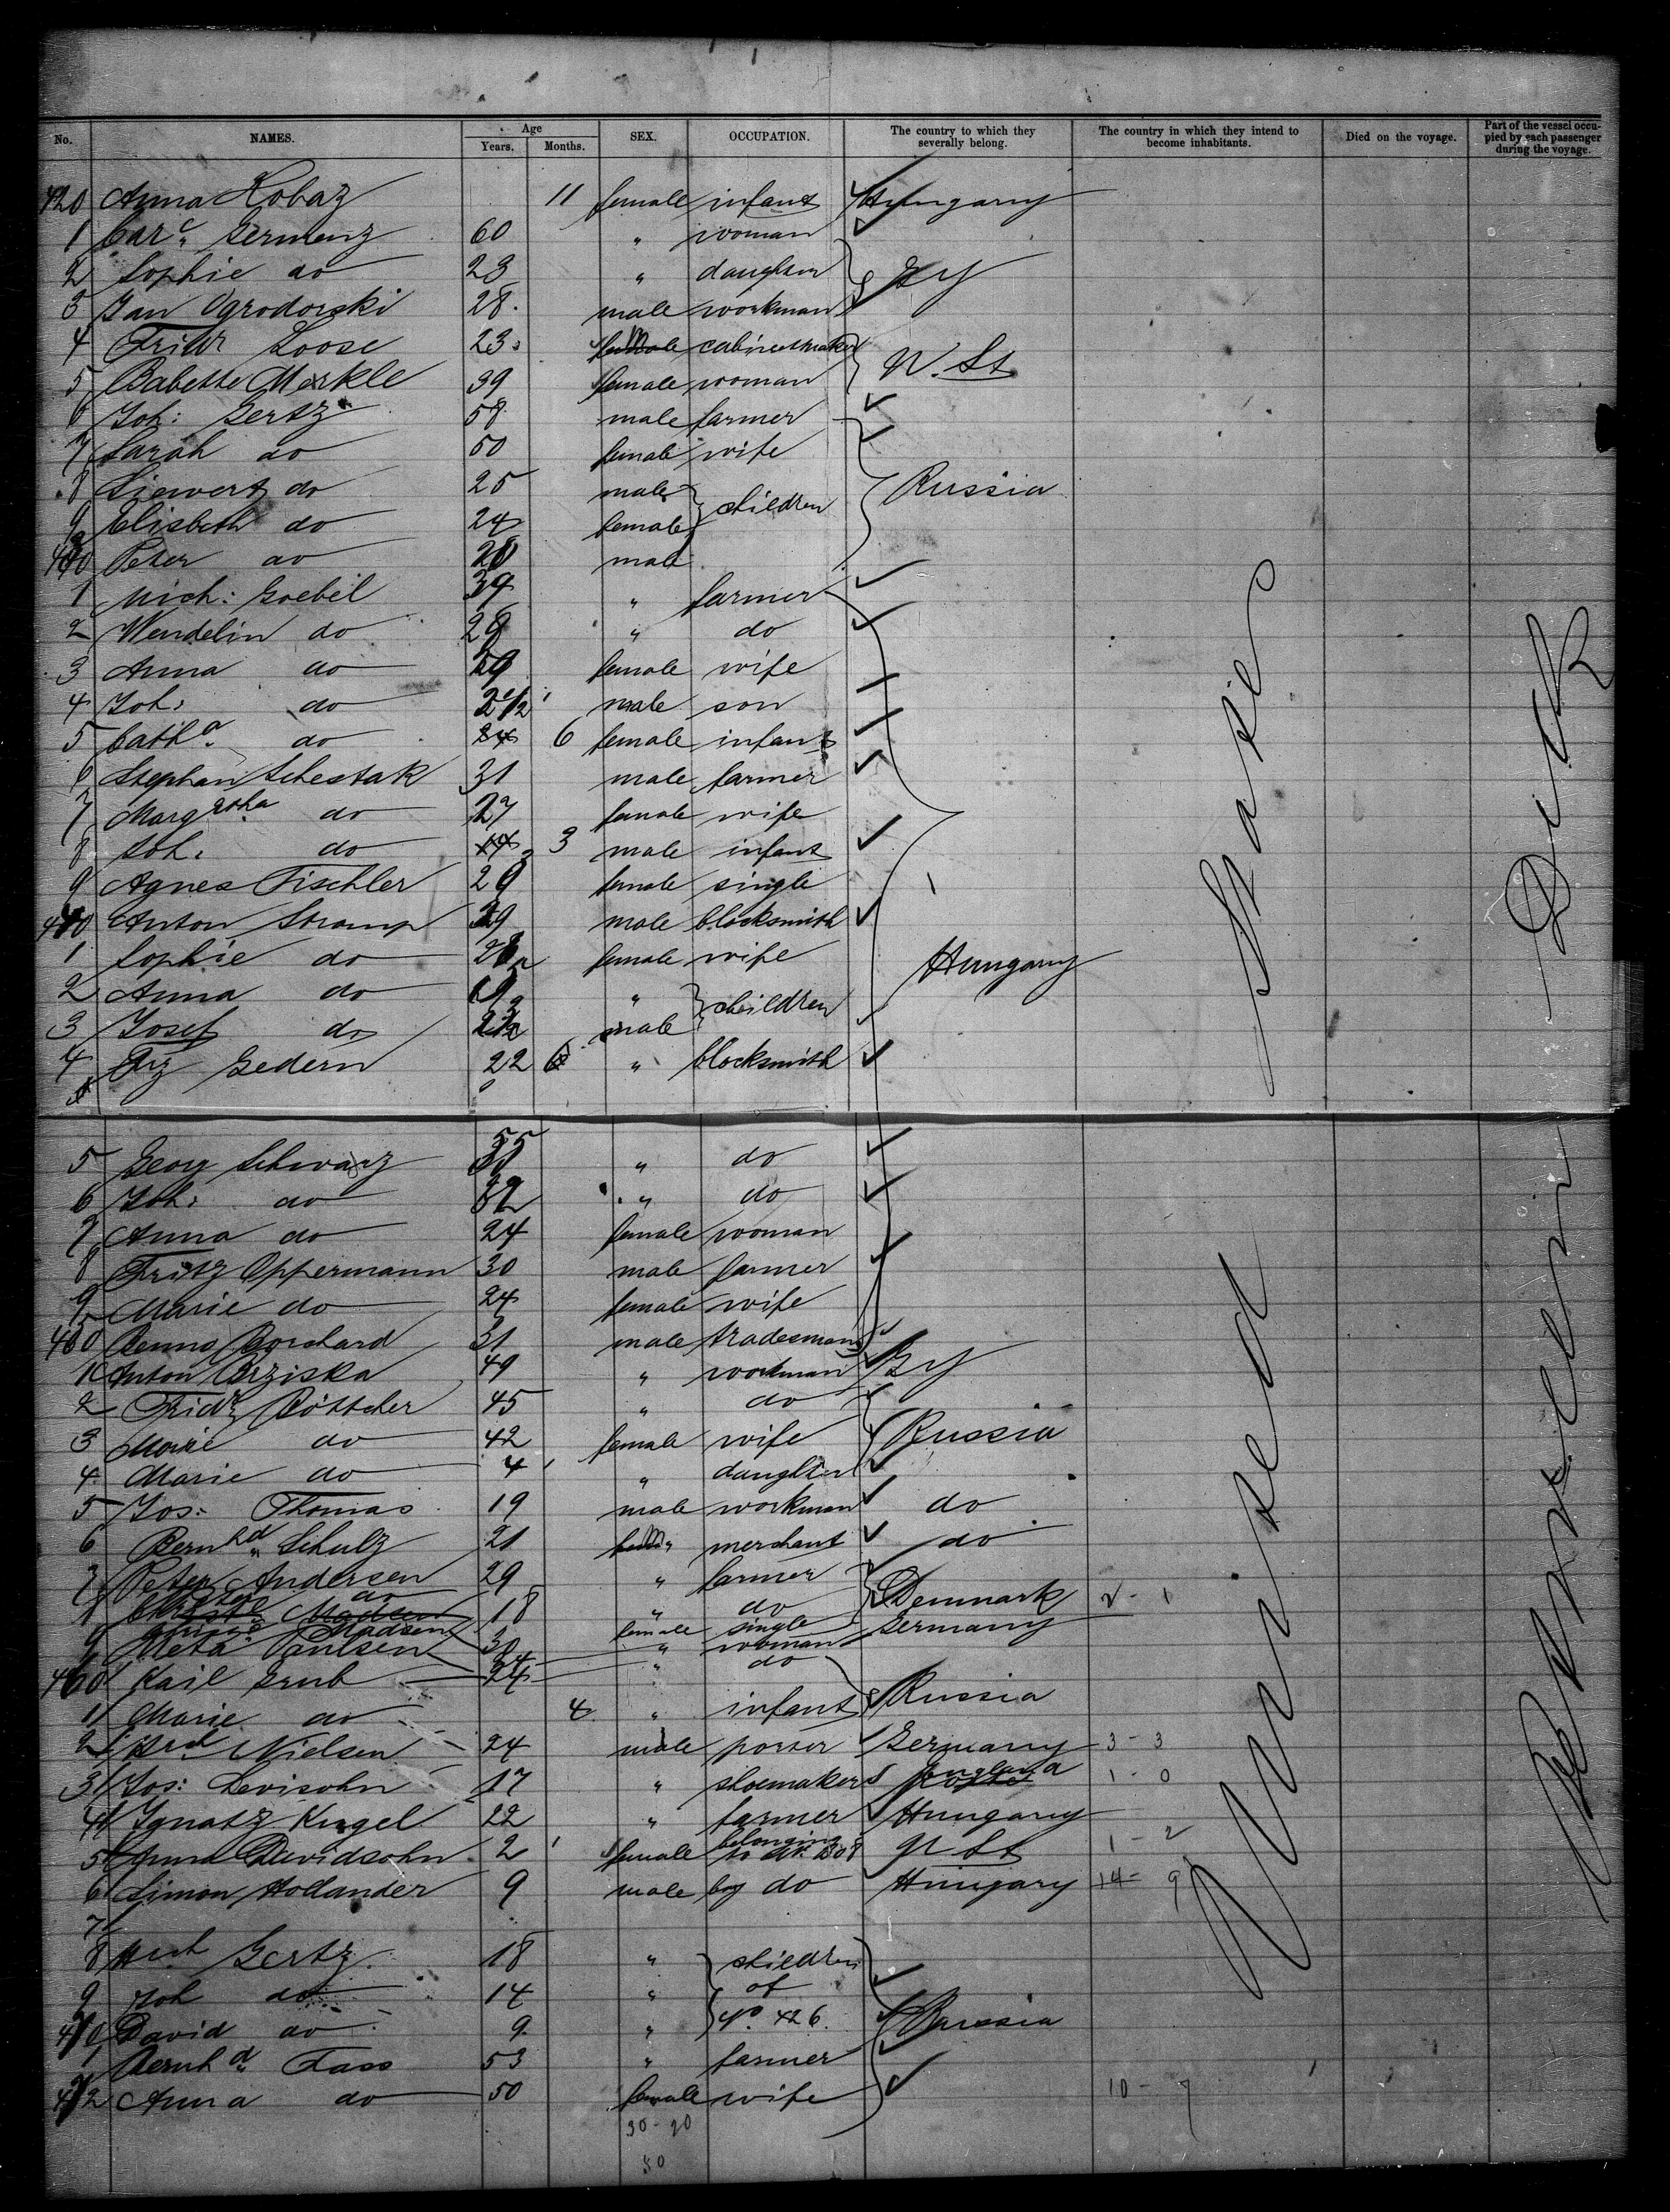 No. NAMES. Age Years. Months. SEX. OCCUPATION. The country to which they severally belong. The country in which they intend to become inhabitants. Died on the voyage. Part of the vessel occupied by each passenger during the voyage.
420 Anna Kobaz 11 female infant Hungary
1 Carc. Germenz 60 " woman
2 Sophie do 23 " daughter Gy
3 Jan Ogrodorski 28 male workman
4 Fridr Loose 23 male cabinetmaker N. St
5 Babette Merkle 39 female woman
6 Joh: Gertz 58 male farmer
7 Sarah do 50 female wife
8 Siewert do 25 male children Russia
9 Elisbeth do 24 female
430 Peter do 20 male
1 Mich: Goebel 34 " farmer
2 Wendelin do 28 " do
3 Anna do 29 female wife
4 Joh: do 2 1/2 male son
5 Catha. do 6 female infant
6 Stephan Schestak 31 male farmer
7 Margretha do 27 female wife
8 Joh. do 3 male infant
9 Agnes Fischler 20 female single
440 Anton Stramp 39 male blocksmith
1 Sophie do 28 female wife Hungary
2 Anna do 9 " children
3 Josef do male
4 Frz Gedern 22 " blocksmith
5 Georg Schwarz 35 " do
6 Joh: do 32 " do
7 Anna do 24 female woman
8 Fritz Oppermann 30 male farmer
9 Marie do 24 female wife
450 Benno Borchard 31 male tradesman
1 Anton Brziska 49 " workman Gy
2 Fridr Böttcher 45 " do
3 Marie do 42 female wife Russia
4 Marie do 4 " daughter
5 Jos: Thomas 19 male workman do
6 Bernhd Schulz 21 m " merchant do
7 Peter Andersen 29 " farmer Denmark 2 - 1
8 do 18 " do
Madsen female single Germany
9 Meta Paulsen 30 " woman
460 Kail Grub 24 " do
1 Marie do 4 " infant Russia
2 Hrch Nielsen 24 male porter Germany 3 - 3
3 Jos: Levisohn 17 " shoemaker England 1 - 0
4 Ignatz Kugel 22 " farmer Hungary
5 Anna Davidsohn 2 female belonging to No 308 N St 1 - 2
6 Simon Hollander 9 male boy do Hungary 14 - 9
7
8 Hrch Gertz 18 " children
9 Joh do 14 " of
470 David do 9 " No. 426. Russia
1 Bernhd Fass 53 " farmer
472 Anna do 50 female wife 10 - 7
30 - 20
50
United States
Zwischen Deck